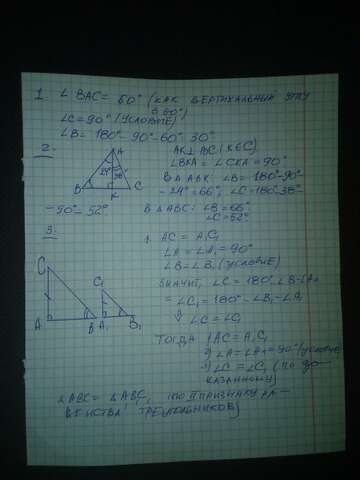 1 ∠BAC = 60° (КАК ВЕРТИКАЛЬНЫЙ УГЛУ
В 60°)
∠C = 90° (УСЛОВИЕ)
∠B = 180° - 90° - 60° 30°
2.
A
AK ⊥ BC (K ∈ C)
∠BKA = ∠CKA = 90°
24° 38°
В Δ ABK: ∠B = 180° - 90° -
B K C
- 24° = 66°; ∠C = 180° 38° -
- 90° - 52°
В Δ ABC: ∠B = 66°
∠C = 52°
3.
1. AC = A₁C₁
∠A = ∠A₁ = 90°
C
∠B = ∠B₁ (УСЛОВИЕ)
C₁
ЗНАЧИТ, ∠C = 180° - ∠B - ∠A =
= ∠C₁ = 180° - ∠B₁ - ∠A₁
⇓
A B A₁ B₁
∠C = ∠C₁
ТОГДА 1) AC = A₁C₁
2) ∠A = ∠A₁ = 90° (УСЛОВИЕ)
3) ∠C = ∠C₁ (ПО ДО-
КАЗАННОМУ)
ΔABC = ΔABC₁ (ПО II ПРИЗНАКУ РА-
ВЕНСТВА ТРЕУГОЛЬНИКОВ)